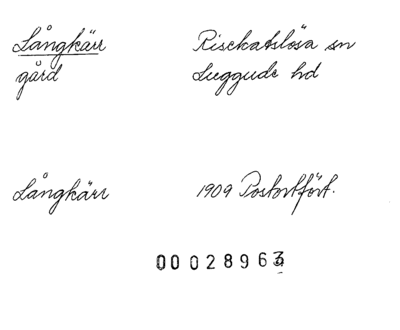 Långkärr Risekatslösa sn
gård Luggude hd
Långkärr 1909 Postortfört.
00 028963